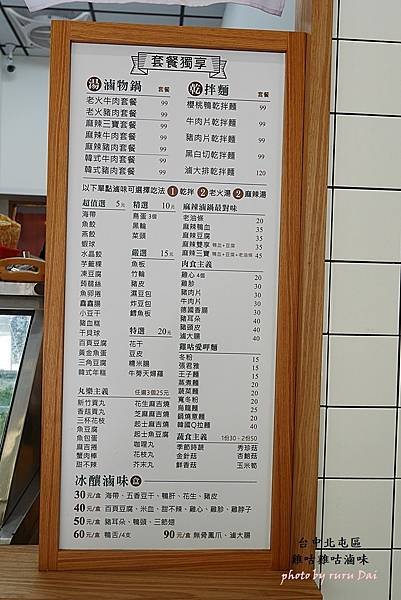 套餐獨享
湯 滷物鍋 套餐
老火牛肉套餐 99
老火豬肉套餐 99
麻辣三寶套餐 99
麻辣牛肉套餐 99
麻辣豬肉套餐 99
韓式牛肉套餐 99
韓式豬肉套餐 99
乾 拌麵 套餐
櫻桃鴨乾拌麵 99
牛肉片乾拌麵 99
豬肉片乾拌麵 99
黑白切乾拌麵 99
滷大排乾拌麵 120
以下單點滷味可選擇吃法 1 乾拌 2 老火湯 2 麻辣湯
超值選 5元
海帶
魚餃
燕餃
蝦球
水晶餃
芋籤粿
凍豆腐
蒟蒻絲
魚卵捲
鑫鑫腸
小豆干
豬血糕
干貝球
百頁豆腐
黃金魚蛋
三角豆腐
韓式年糕
精選 10元
鳥蛋 3個
黑輪
菜頭
嚴選 15元
魚板
竹輪
豬皮
濕豆包
炸豆包
鱈魚板
特選 20元
花干
豆皮
糯米腸
牛蒡天婦羅
丸樂主義 任選3個25元
新竹貢丸
香菇貢丸
三杯花枝
魚豆腐
魚包蛋
麻吉捲
蟹肉棒
甜不辣
花生麻吉燒
芝麻麻吉燒
起士麻吉燒
起士魚豆腐
咖哩丸
花枝丸
芥末丸
麻辣滷鍋最對味
老油條 20
麻辣鴨血 35
麻辣豆腐 35
麻辣雙享 鴨血+豆腐 35
麻辣三寶 鴨血+豆腐+老油條 45
肉食主義
雞心 4個 20
雞胗 30
豬肉片 30
牛肉片 30
德國香腸 30
豬耳朵 30
豬頭皮 40
滷大腸 40
雞咕愛呷麵
冬粉 20
張君雅 20
王子麵 20
蒸煮麵 20
蔬菜麵 20
寬冬粉 20
烏龍麵 20
鍋燒意麵 20
韓國Q拉麵 40
蔬食主義 1份30 - 2份50
季節時蔬 秀珍菇
金針菇 杏鮑菇
鮮香菇 玉米筍
冰釀滷味 盒
30元/盒 海帶、五香豆干、鴨肝、花生、豬皮
40元/盒 百頁豆腐、米血、甜不辣、雞心、雞胗、雞脖子
50元/盒 豬耳朵、鴨頭、三節翅
60元/盒 鴨舌/4支 90元/盒 無骨鳳爪、滷大腸
台中北屯區
雞咕雞咕滷味
photo by ruru Dai